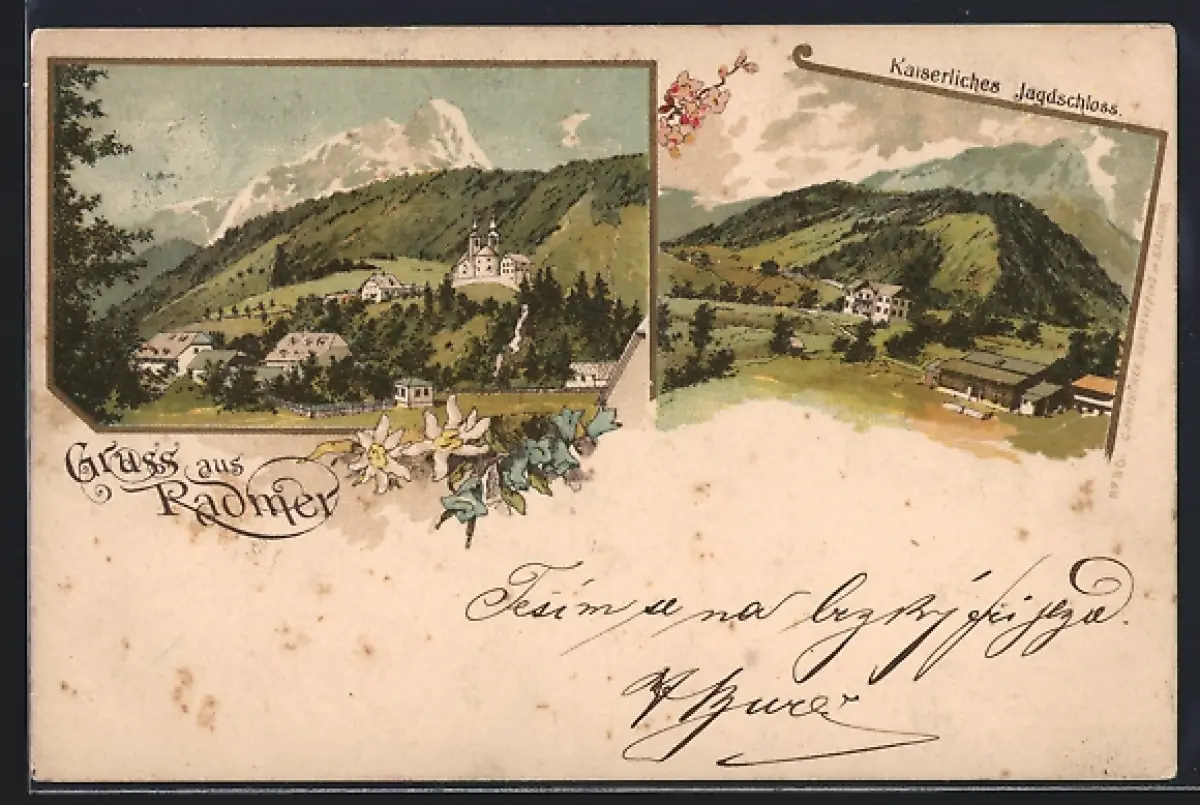 Kaiserliches Jagdschloss.
Gruss aus
Radmer
Těším se na brzký příjezd.